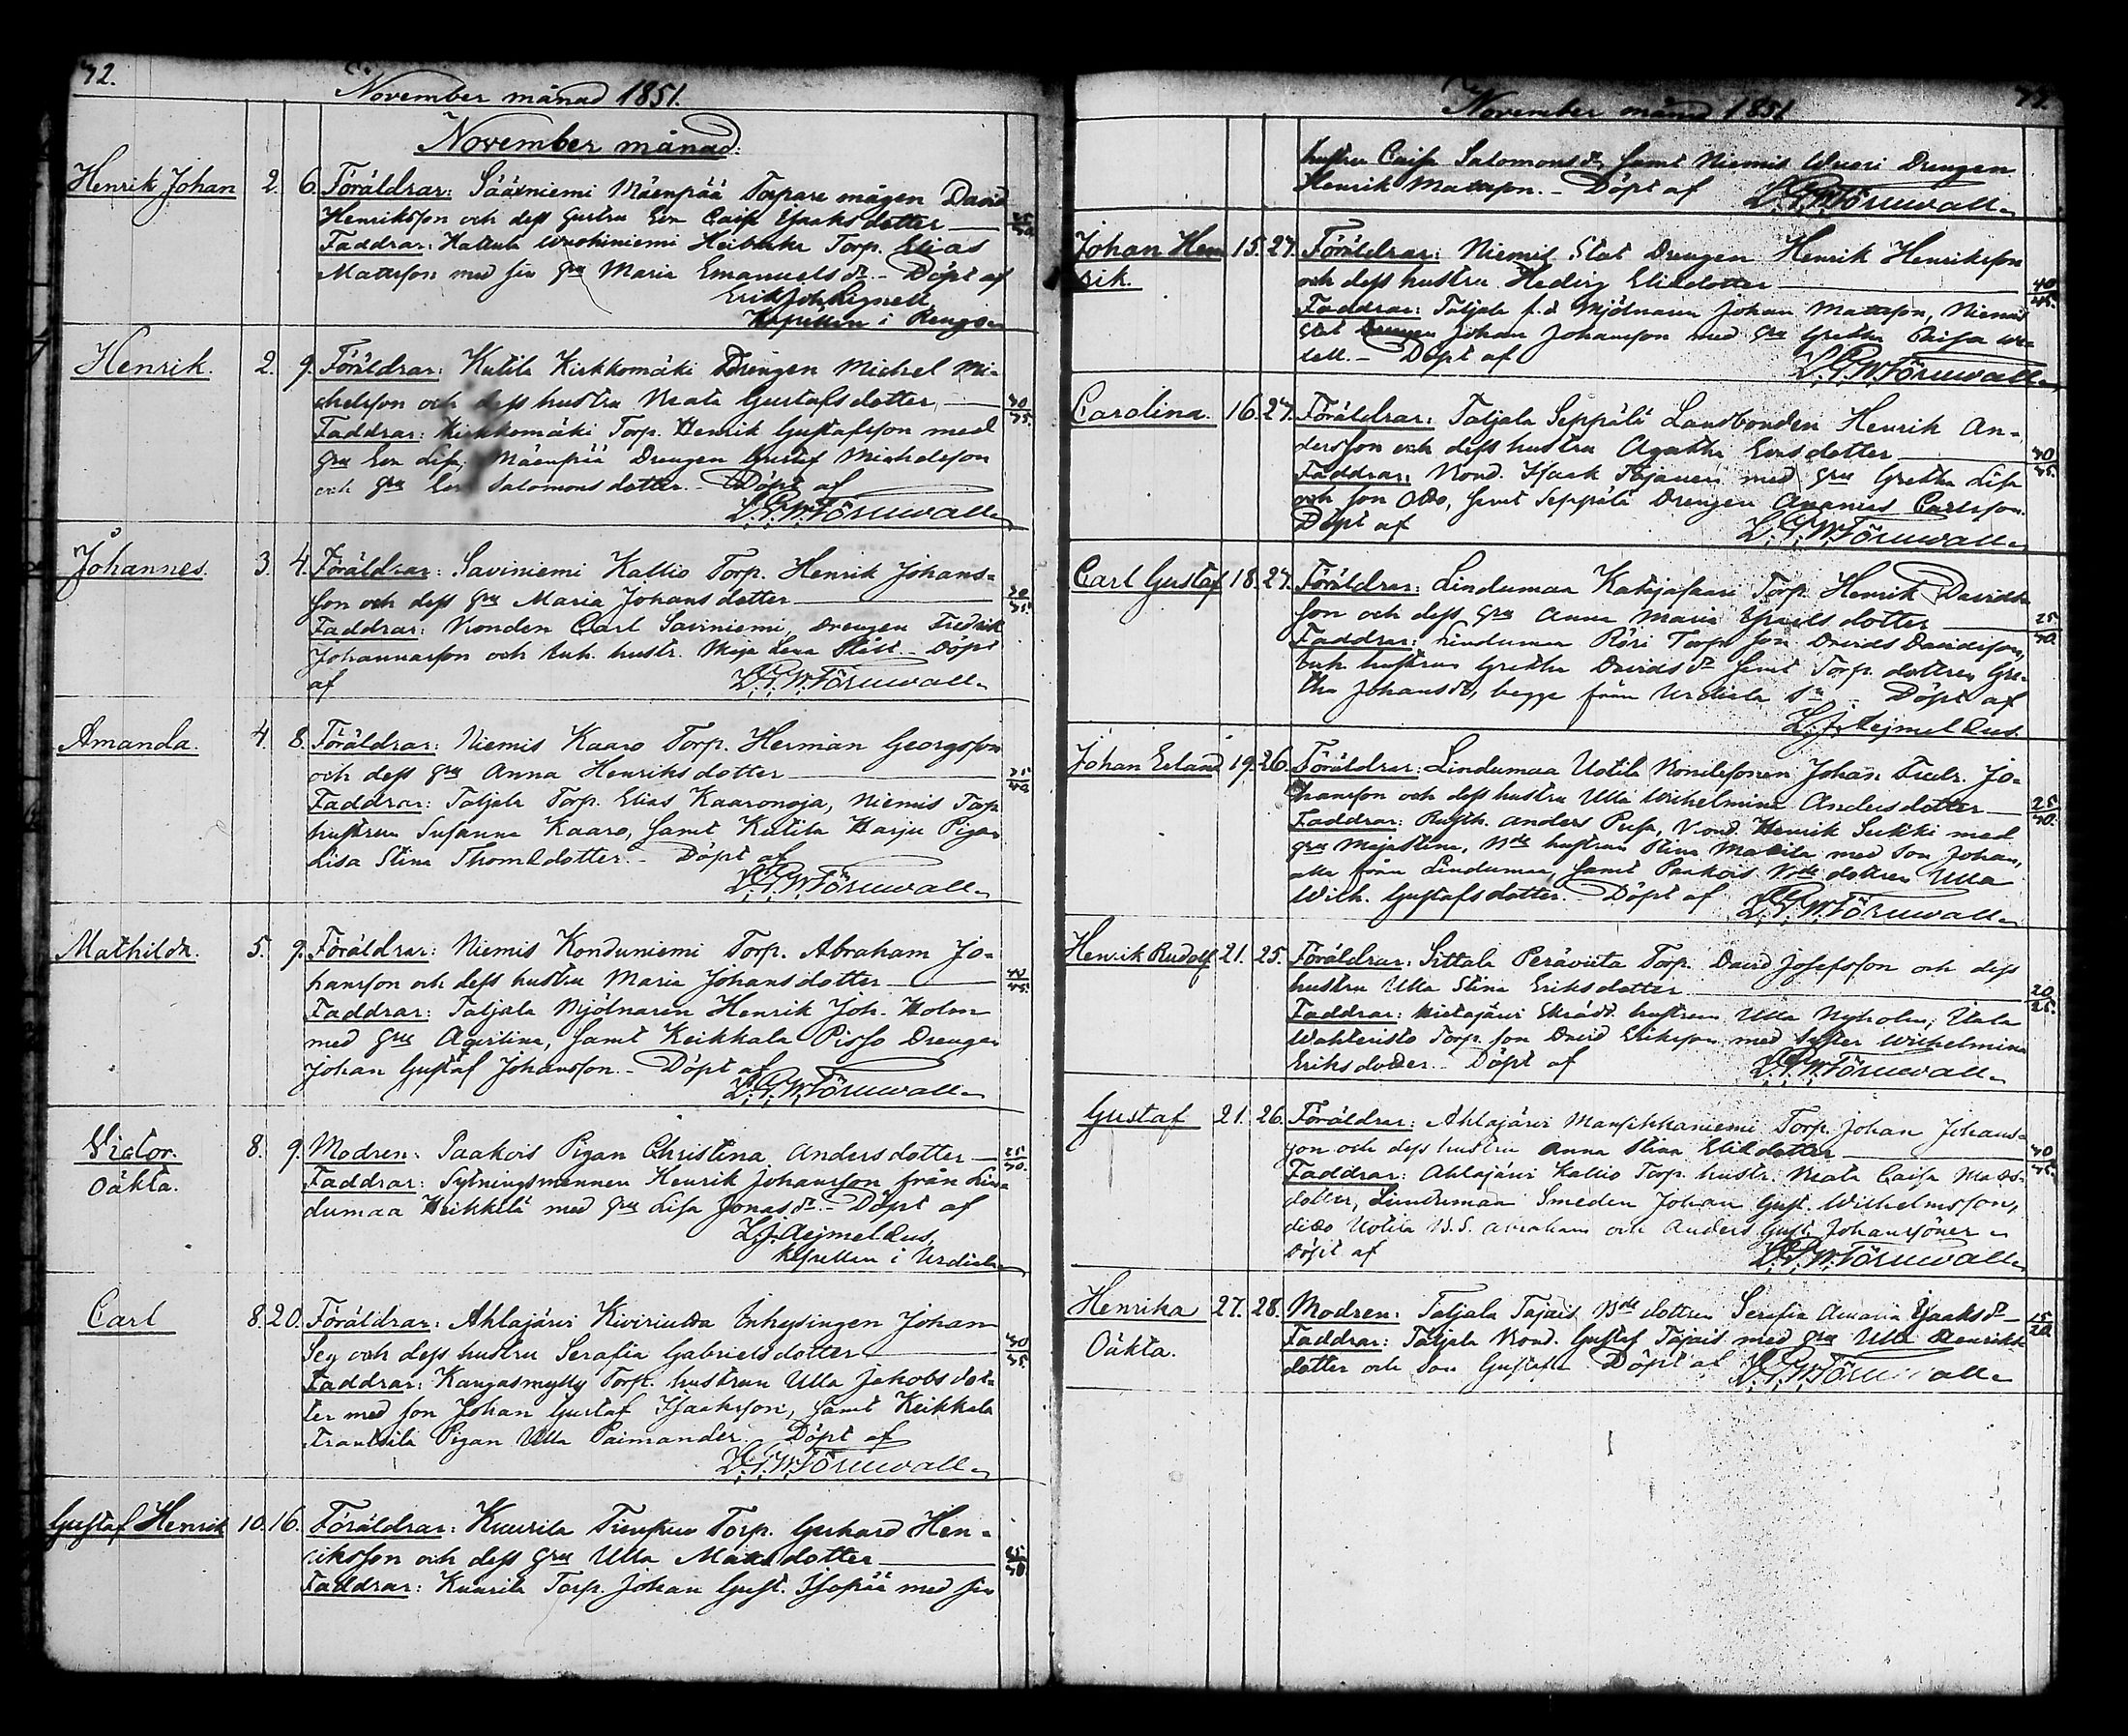 72.
November månad 1851.
November månad.
Henrik Johan 2. 6. Föräldrar: Sääxniemi Mäenpää Torpare mågen David
Henriksson och dess hustru Eva Caisa Isaksdotter
Faddrar: Hattula Torp. Elias
Mattsson med sin hru Maria Emanuels dr. Döpt af
Erik Joh. Lignell
Kapellan i Rengo
Henrik. 2. 9. Föräldrar: Kutila Kirkkomäki Drengen Michel Mi-
chelsson och dess hustru Beata Gustafsdotter 40/45.
Faddrar: Kirkkomäki Torp. Henrik Gustafsson med
hru Eva Lisa, Mäenpää Drengen Gustaf Michelsson
och hru Eva Salomonsdotter. Döpt af
L. G. W. Törnwall
Johannes. 3. 4. Föräldrar: Saviniemi Kallio Torp. Henrik Johans-
son och dess hru Maria Johansdotter
Faddrar: Bonden Carl Saviniemi, Drengen Fredrik
Johannesson och Enk. hustr. Maja Lena Slätt. Döpt
af L. G. W. Törnwall
Amanda. 4. 8. Föräldrar: Niemis Kaaro Torp. Herman Georgsson
och dess hru Anna Henriksdotter
Faddrar: Taljala Torp. Elias Kaaronoja, Niemis Torp.
hustrun Susanna Kaaro, samt Kutila Harju Pigan
Lisa Stina Thomædotter. Döpt af
L. G. W. Törnwall
Mathilda. 5. 9. Föräldrar: Niemis Konduniemi Torp. Abraham Jo-
hansson och dess hustru Maria Johansdotter 40/45.
Faddrar: Taljala Mjölnaren Henrik Joh. Holm
med hru Agistina, samt Keikkala Pisso Drengen
Johan Gustaf Johansson. Döpt af
L. G. W. Törnwall
Victor. 8. 9. Modren: Paakois Pigan Christina Andersdotter 25/30.
Oäkta. Faddrar: Sytningsmannen Henrik Johansson från Lin-
dumaa Heikkilä med hru Lisa Jonas dr. Döpt af
L. J. Aejmelæus,
kapellan i Urdiala
Carl 8. 20. Föräldrar: Ahlajärvi Kiviriutta Inhysingen Johan
Seg och dess hustru Serafia Gabrielsdotter
Faddrar: Kangasmylly Torp. hustrun Ulla Jakobsdot-
ter med son Johan Gustaf Isaksson, samt Keikkala
Frantsilä Pigan Ulla Paimander. Döpt af
L. G. W. Törnwall
Gustaf Henrik 10. 16. Föräldrar: Kuurila Torp. Gerhard Hen-
riksson och dess hru Ulla Matsdotter
Faddrar: Kuurila Torp. Johan Gust. Isopää med sin
November månad 1851
hustru Caisa Salomons dr, samt Niemis Wuori Drengen
Henrik Mattsson. Döpt af L. G. W. Törnwall
Johan Hen 15. 27. Föräldrar: Niemis Stat Drengen Henrik Henriksson
rik. och dess hustru Hedvig Eliædotter 40/45.
Faddrar: Taljala f.d. Mjölnaren Johan Mattsson, Niemis
Stat Drengen Johan Johansson med hru Gretha Caisa
Döpt af L. G. W. Törnwall
Carolina. 16. 27. Föräldrar: Taljala Seppälä Landbonden Henrik An-
dersson och dess hustru Agatha Eriksdotter 40/45.
Faddrar: Bond. Isaak Tajanen med hru Gretha Lisa
och son Otto, samt Seppälä Drengen Ananias Carlsson.
Döpt af L. G. W. Törnwall
Carl Gustaf 18. 27. Föräldrar: Lindumaa Katajasaari Torp. Henrik Davids-
son och dess hru Anna Maria Israelsdotter
Faddrar: Lindumaa Röri Torp. son David Davidsson,
Enk. hustrun Gretha Davids dr samt Torp. dottren Gre-
tha Johans dr, begge från Urdiala Sn. Döpt af
L. J. Aejmelæus.
Johan Erland 19. 26. Föräldrar: Lindumaa Uotila Bondesonen Johan Fredr. Jo-
hansson och dess hustru Ulla Wilhelmina Andersdotter 25/30.
Faddrar: Rusth. Anders Pusa, Bond. Henrik Sukki med
hru Maja Stina, Bde hustrun Stina Mattila med son Johan,
alla från Lindumaa, samt Paakois Bde dottren Ulla
Wilh. Gustafsdotter. Döpt af L. G. W. Törnwall
Henrik Rudolf 21. 25. Föräldrar: Sittala Perävuta Torp. David Josefsson och dess
hustru Ulla Stina Eriksdotter 20/25.
Faddrar: Skräd. hustrun Ulla Nyholm,
Torp. son David Eriksson med Syster Wilhelmina
Eriksdotter. Döpt af L. G. W. Törnwall
Gustaf 21. 26. Föräldrar: Ahlajärvi Mansikkaniemi Torp. Johan Johans-
son och dess hustru Anna Stina Eliædotter
Faddrar: Ahlajärvi Kallio Torp. hustr. Beata Caisa Mats-
dotter, Lindumaa Smeden Johan Gust. Wilhelmsson,
ditto Uotila B.S. Abraham och Anders Gust. Johanssöner
Döpt af L. G. W. Törnwall
Henrika 27. 28. Modren: Taljala Tajais Bde dottren Serafia Amanda Isaks dr 15/20
Oäkta. Faddrar: Taljala Bond. Gustaf Tajais med hru Ulla Henriks-
dotter och son Gustaf. Döpt af L. G. W. Törnwall